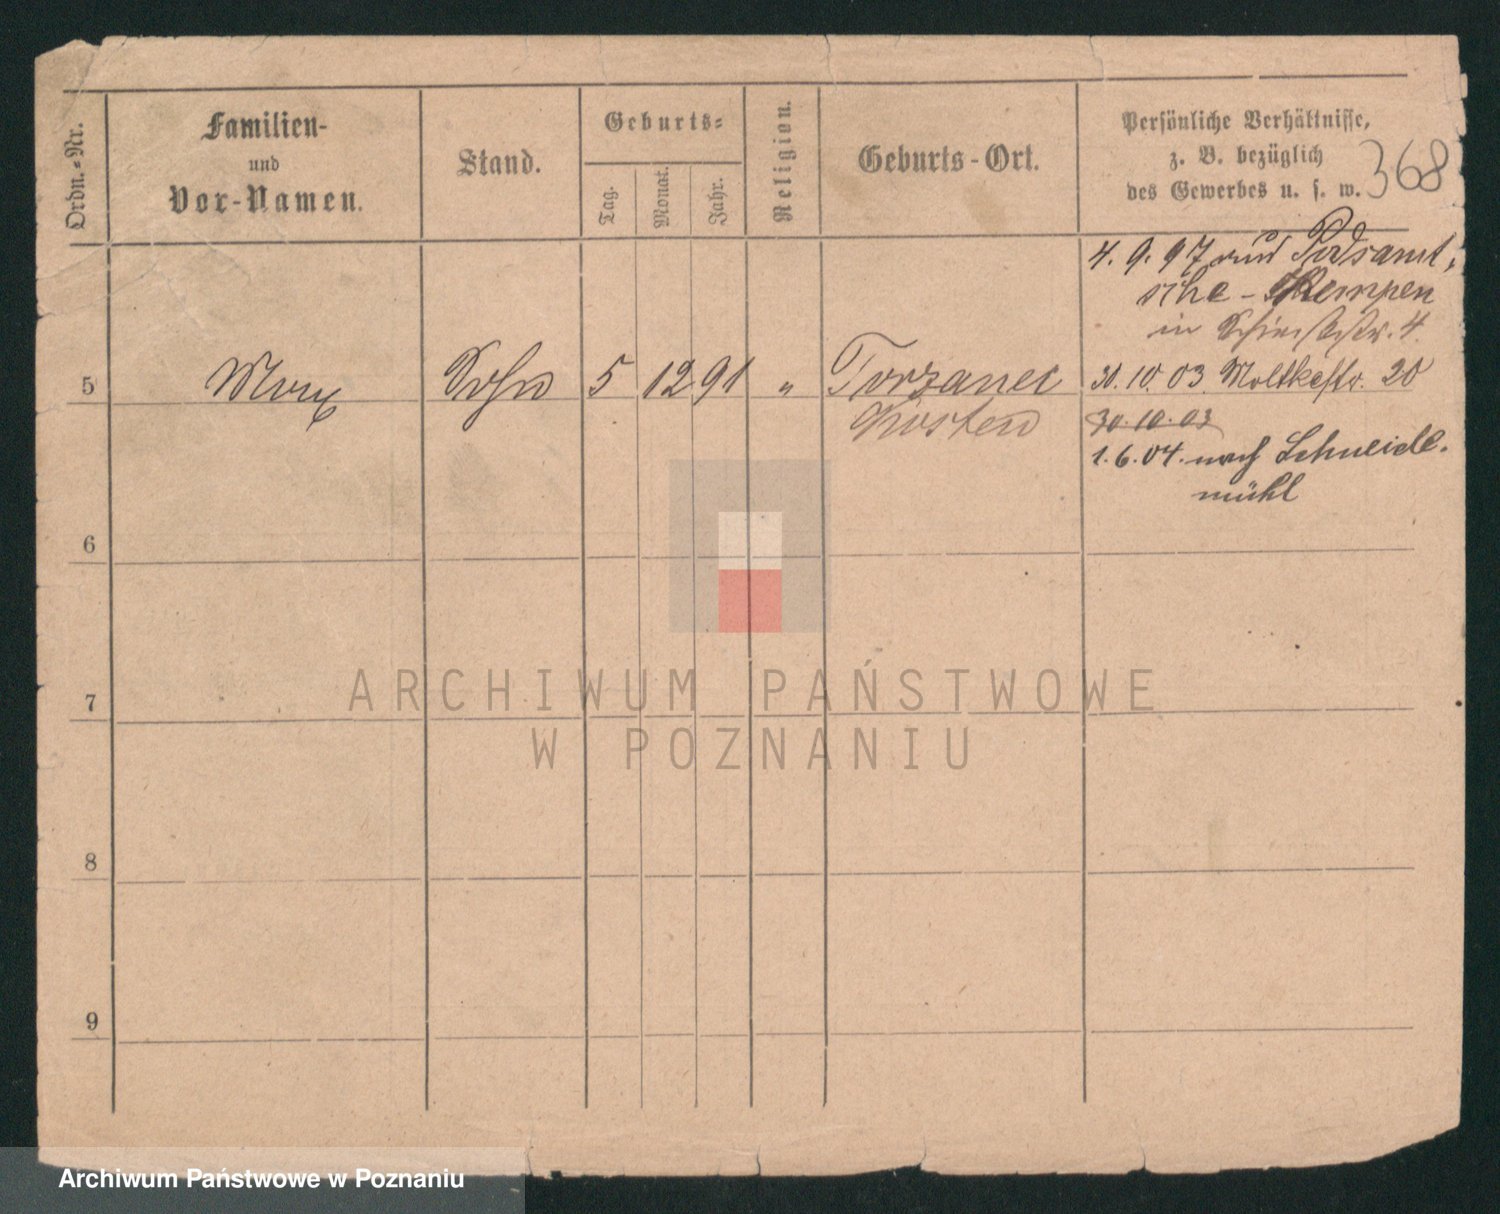 Ordn.-Nr.
Familien-
und
Vor-Namen.
Stand.
Geburts-
Tag.
Monat.
Jahr.
Religion.
Geburts-Ort.
Persönliche Verhältnisse,
z. B. bezüglich
des Gewerbes u. s. w.
368
4. 9. 97
Kempen
in 4.
5 Max Sohn 5 12 91 " Torzanec 30.10.03 Moltkestr. 20
Kosten 30.10.03
1.6.04. nach Schneide-
mühl
6
7
8
9
ARCHIWUM PAŃSTWOWE
W POZNANIU
Archiwum Państwowe w Poznaniu